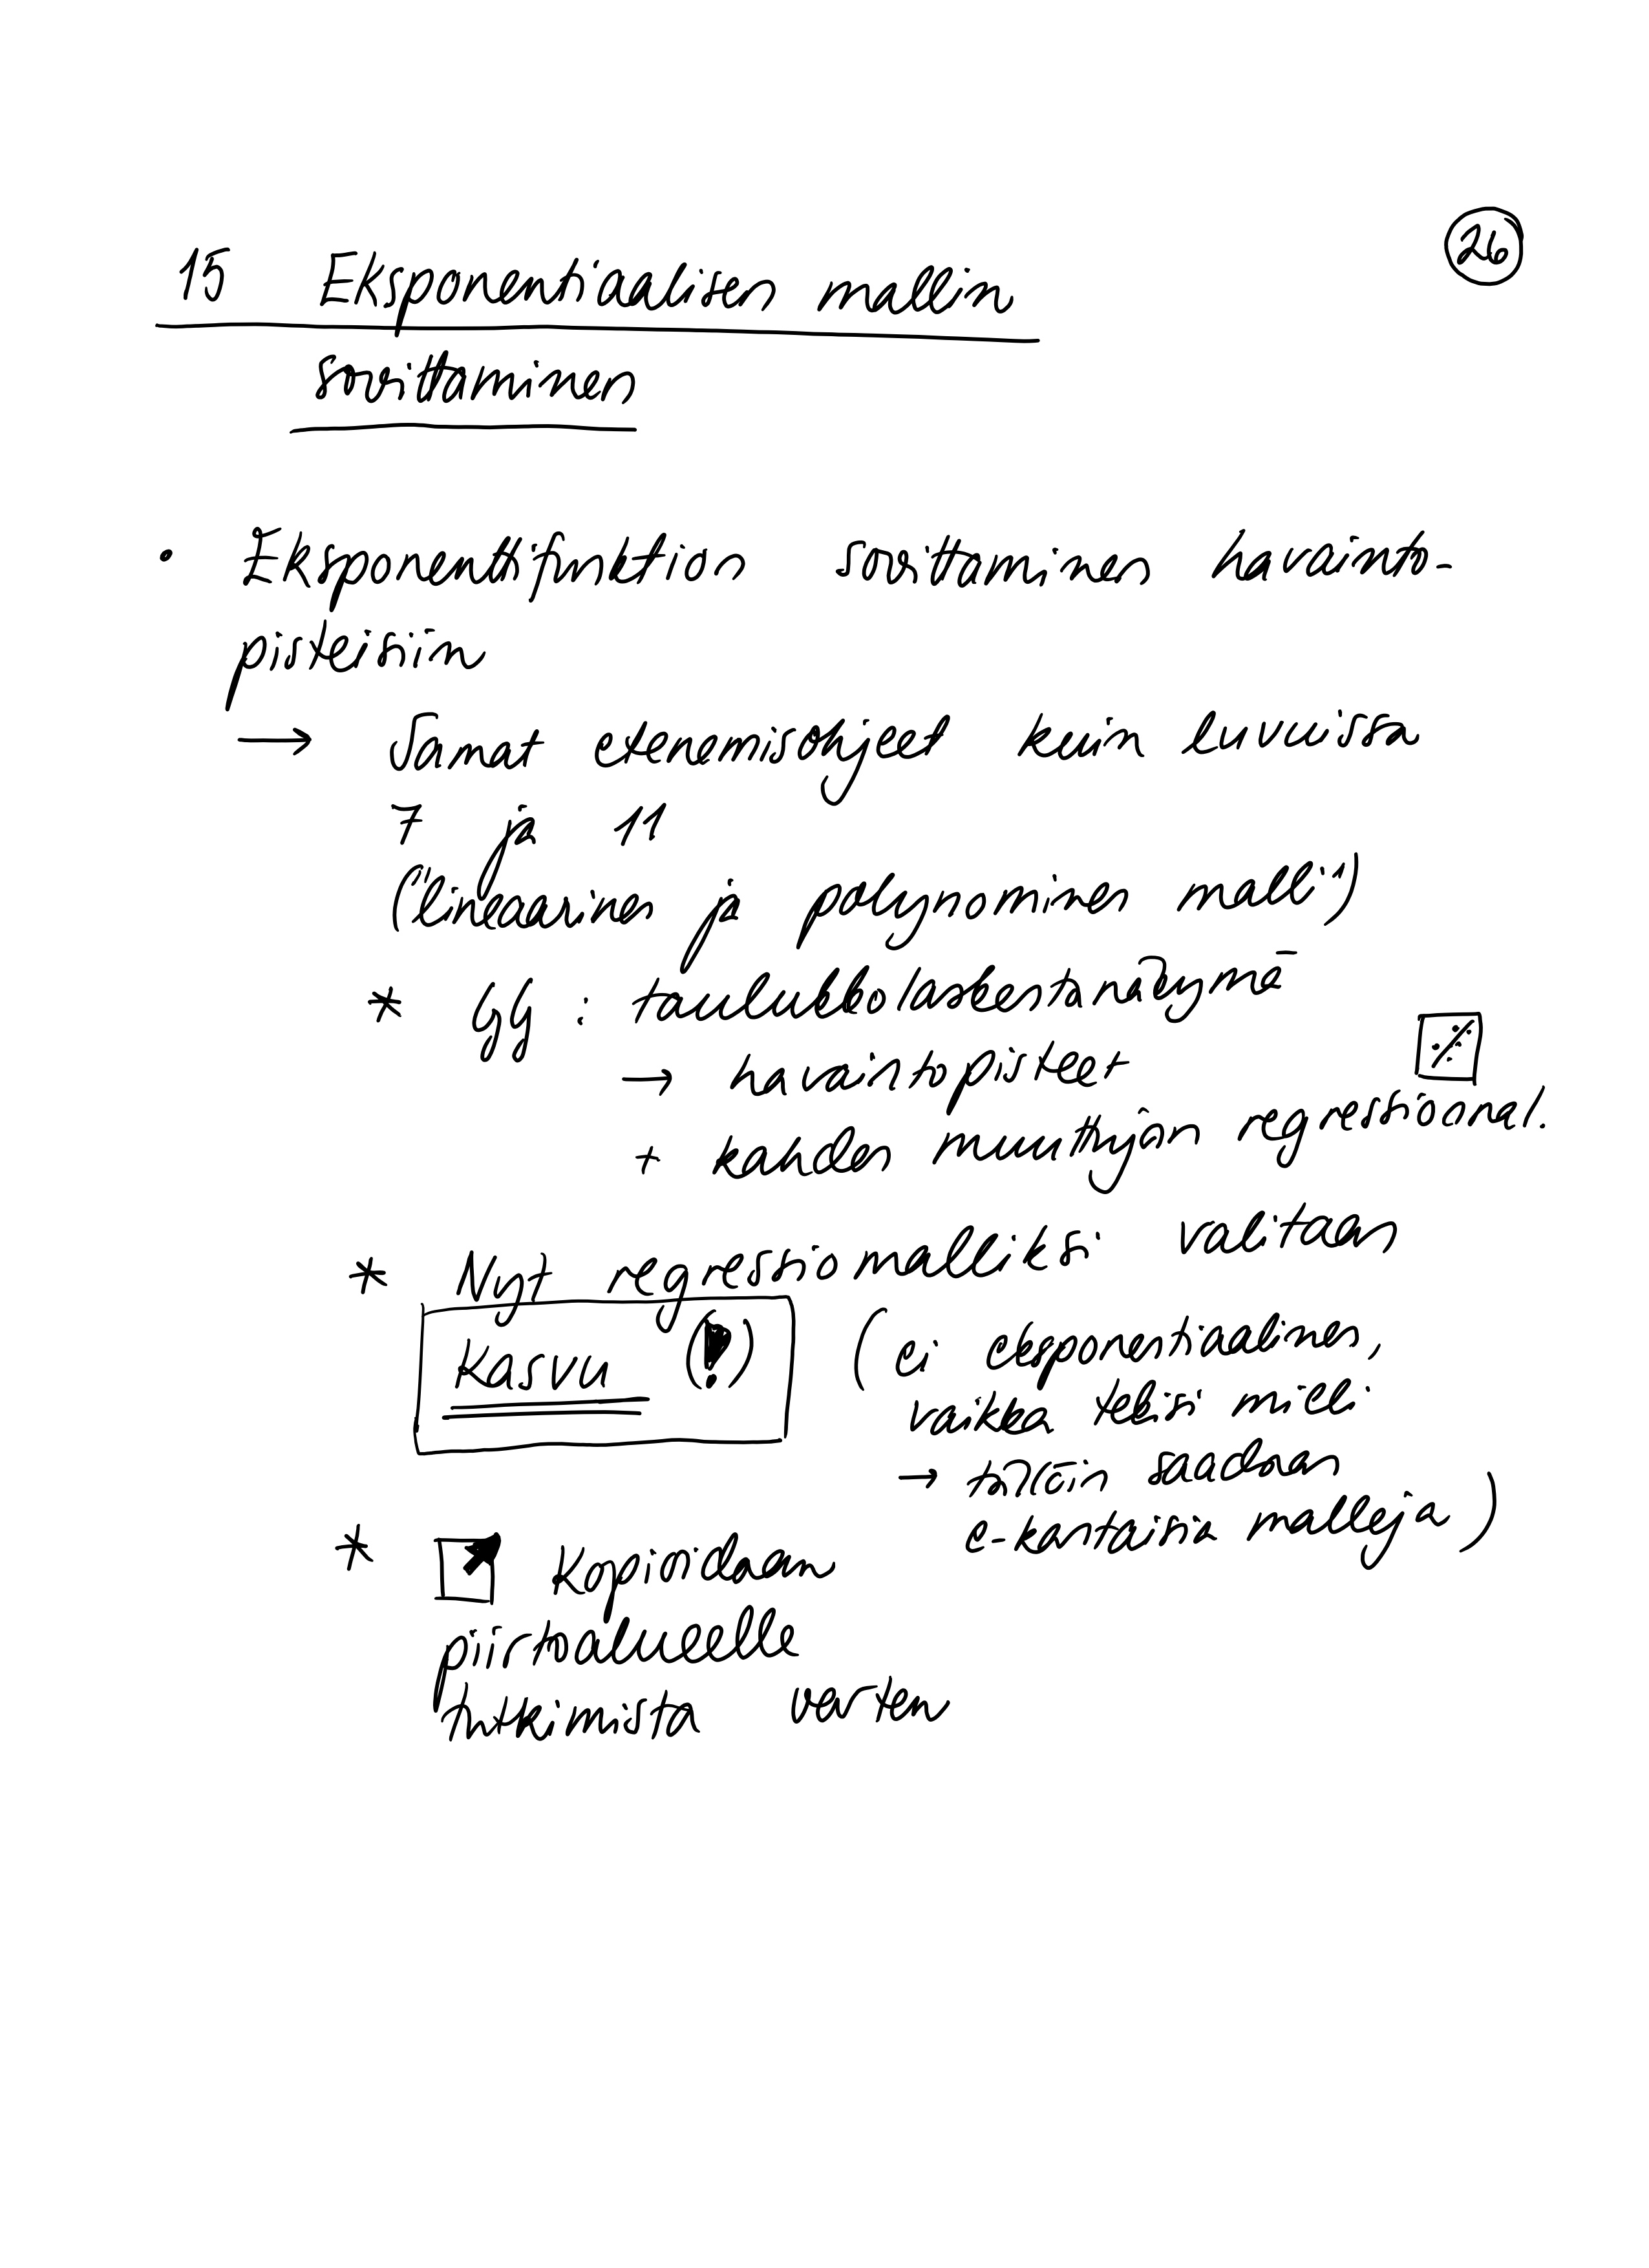 26
15 Eksponentiaalisen mallin
sovittaminen
• Eksponenttifunktion sovittaminen havainto-
pisteisiin
→ Samat etenemisohjeet kuin luvuissa
7 ja 11
("lineaarinen ja polynominen malli")
* GG : taulukkolaskentanäkymä
→ havaintopisteet
+ kahden muuttujan regressioanal.
* Nyt regressiomalliksi valitaan
Kasvu (!) (ei eksponentiaalinen,
vaikka tekisi mieli
→ tällöin saadaan
e-kantaisia malleja)
* Kopioidaan
piirtoalueelle
tutkimista varten